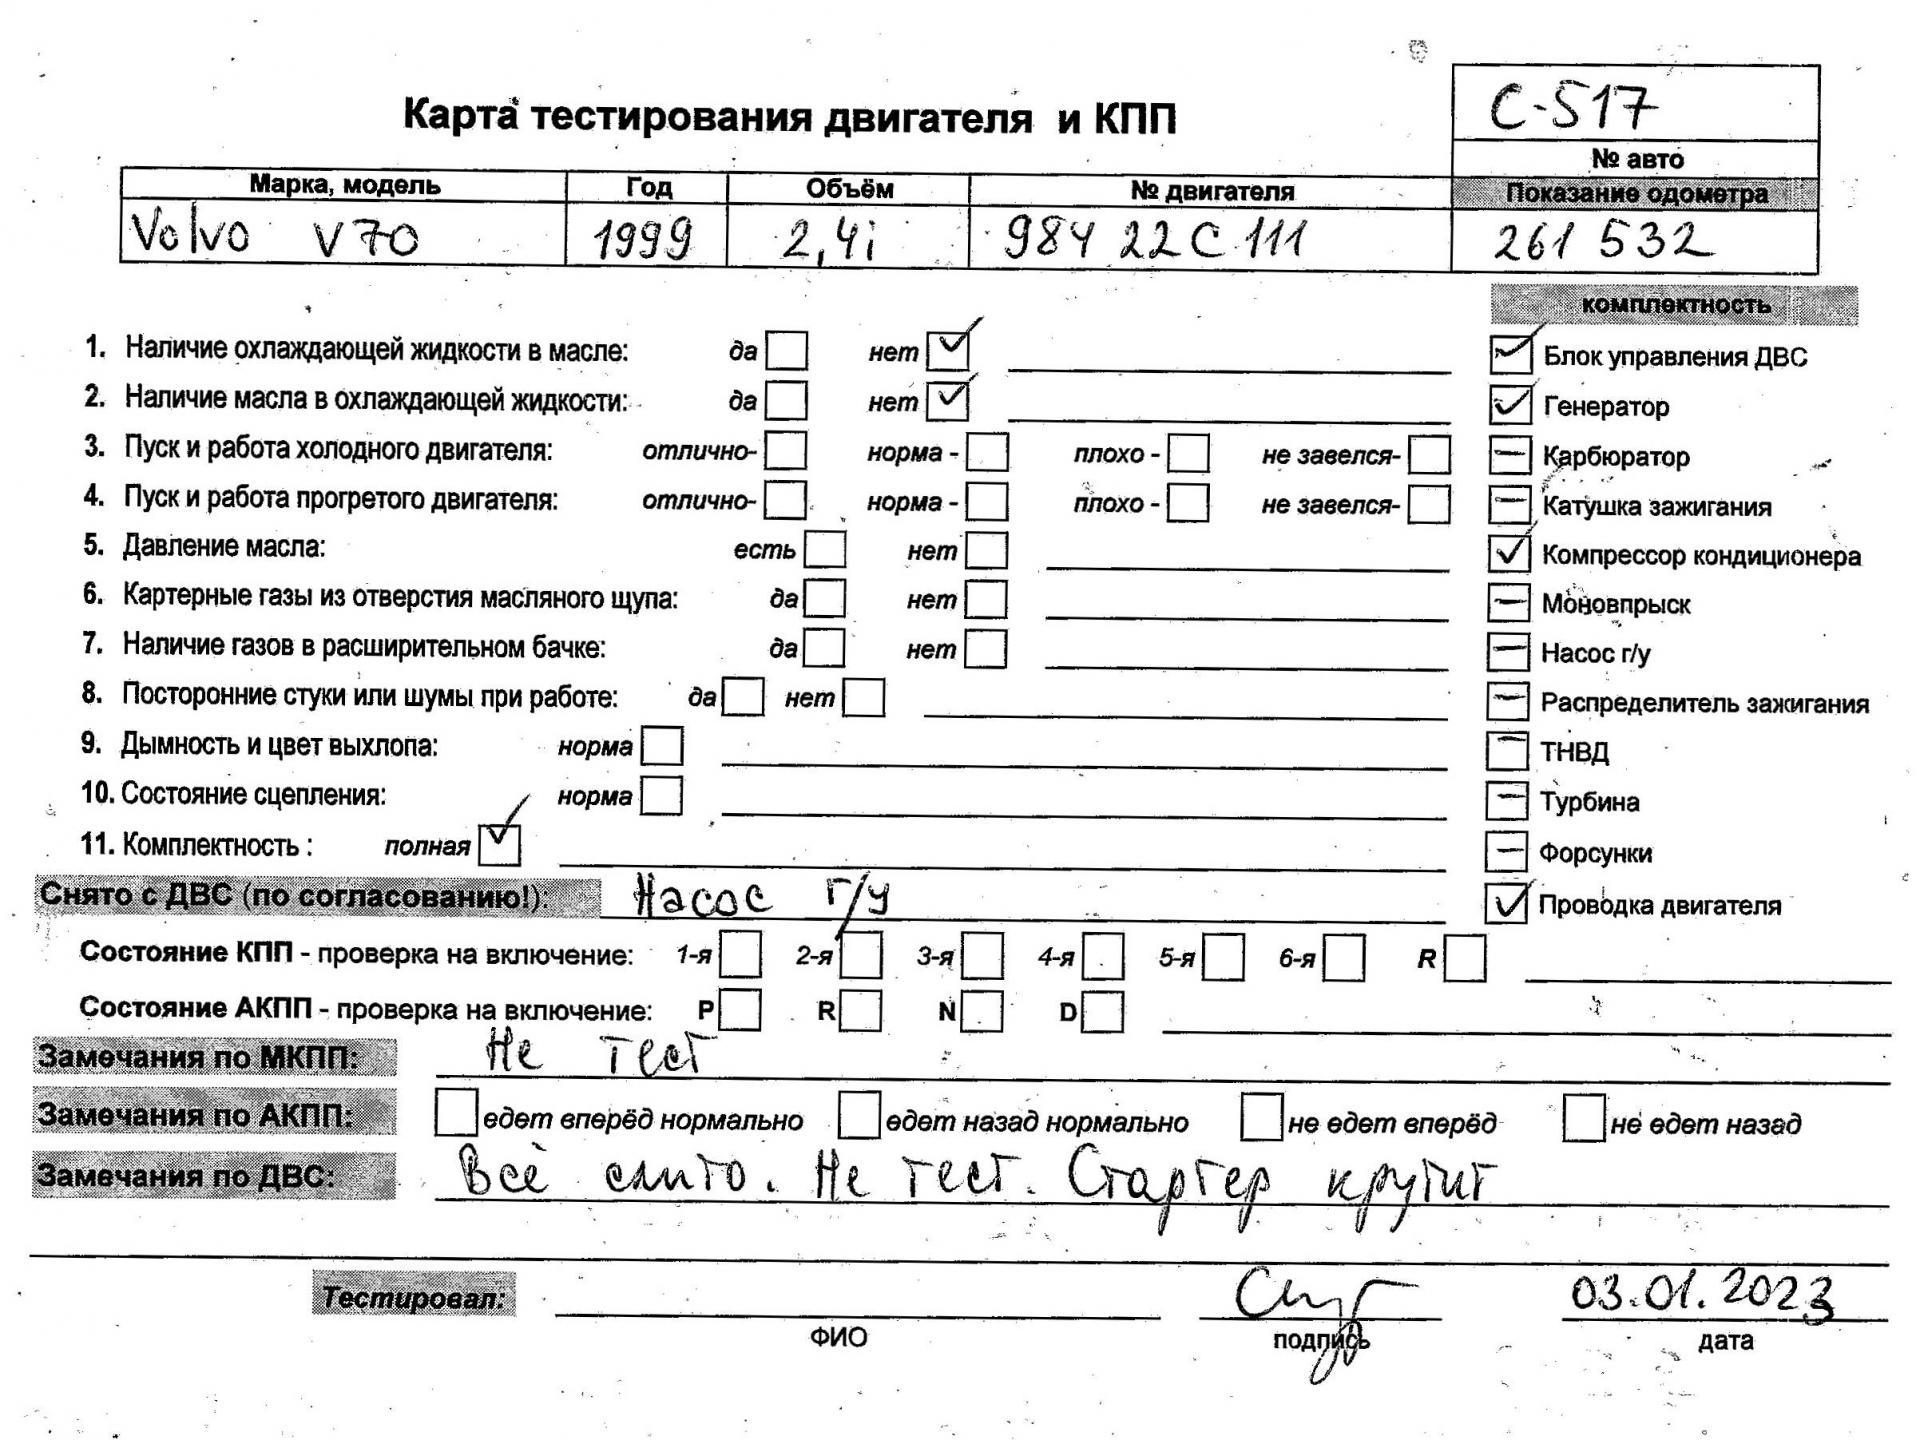 С-517
Карта тестирования двигателя и КПП
№ авто
Марка, модель Год Объём № двигателя Показание одометра
Volvo V70 1999 2,4i 984 22 C 111 261 532
комплектность
1. Наличие охлаждающей жидкости в масле: да нет Блок управления ДВС
2. Наличие масла в охлаждающей жидкости: да нет Генератор
3. Пуск и работа холодного двигателя: отлично- норма - плохо - не завелся- Карбюратор
4. Пуск и работа прогретого двигателя: отлично- норма - плохо - не завелся- Катушка зажигания
5. Давление масла: есть нет Компрессор кондиционера
6. Картерные газы из отверстия масляного щупа: да нет Моновпрыск
7. Наличие газов в расширительном бачке: да нет Насос г/у
8. Посторонние стуки или шумы при работе: да нет Распределитель зажигания
9. Дымность и цвет выхлопа: норма ТНВД
10. Состояние сцепления: норма Турбина
11. Комплектность : полная Форсунки
Снято с ДВС (по согласованию!): Насос г/у Проводка двигателя
Состояние КПП - проверка на включение: 1-я 2-я 3-я 4-я 5-я 6-я R
Состояние АКПП - проверка на включение: P R N D
Замечания по МКПП: Не тест
Замечания по АКПП: едет вперёд нормально едет назад нормально не едет вперёд не едет назад
Замечания по ДВС: Всё слито. Не тест. Стартер крутит
Тестировал: 03.01.2023
ФИО подпись дата